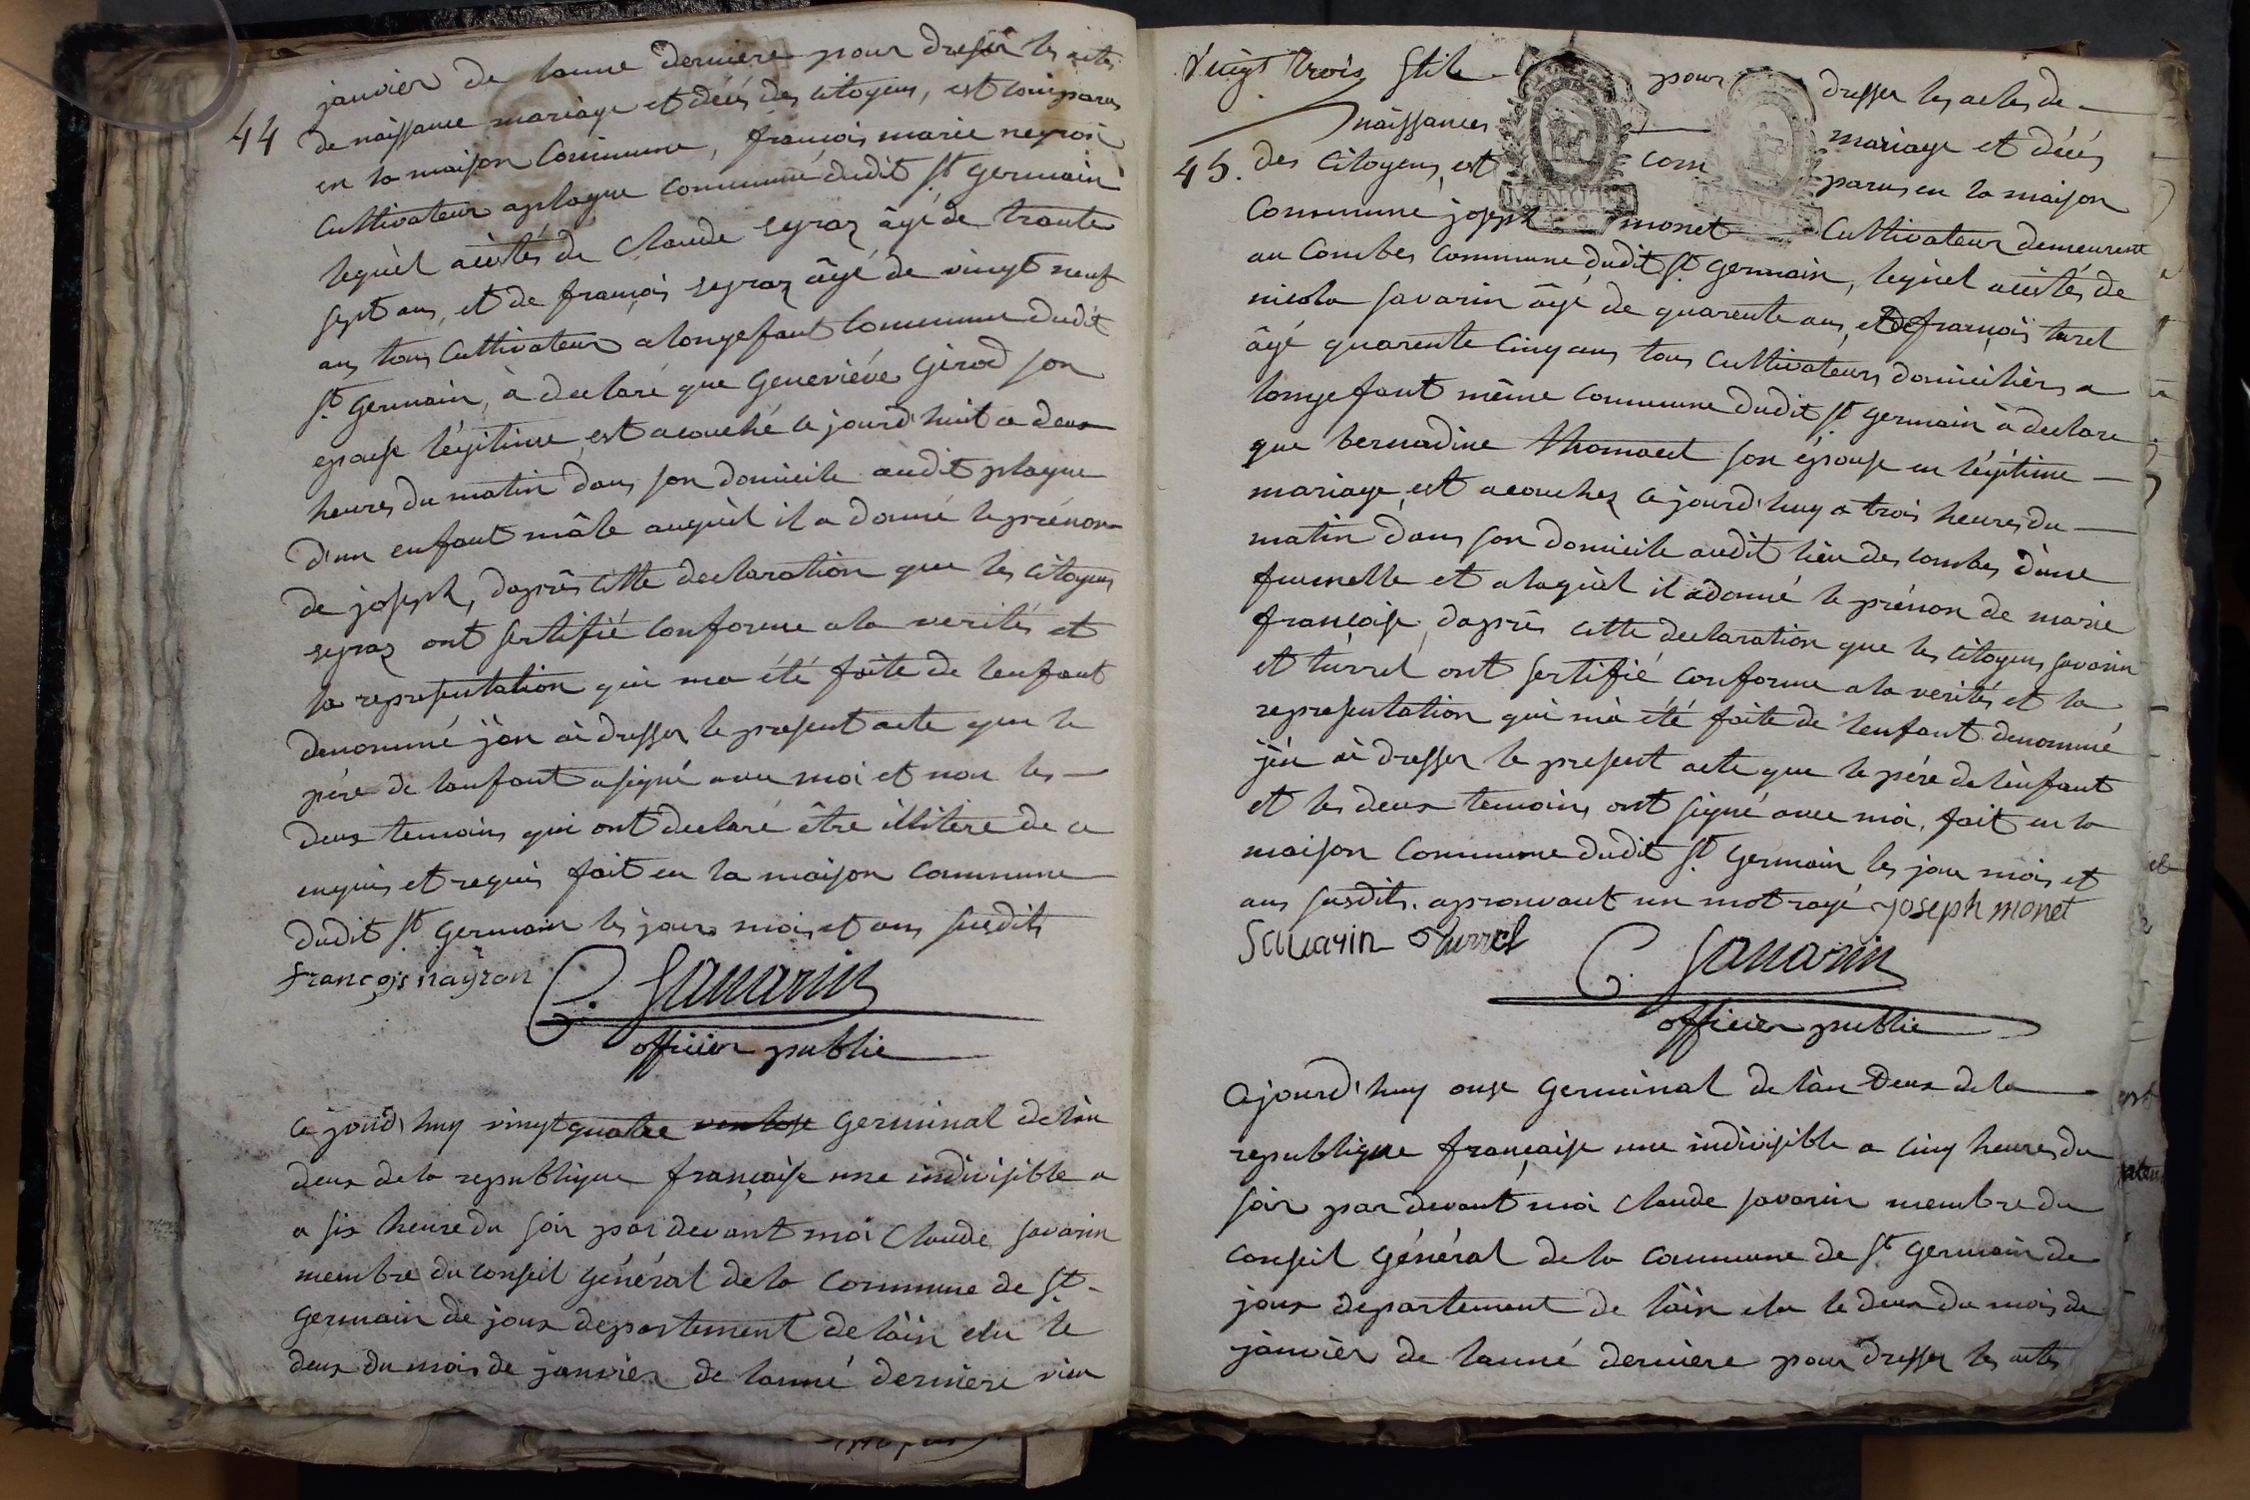 janvier de lanne derniere pour dresser les actes
44
de naissance mariage et décés des citoyens, est comparus
en la maison commune, françois marie neyron
cultivateur aplagne commune dudit St germain
lequel acistés de claude seyraz âgé de trante
sept ans, et de françois seyraz âgé de vingt neuf
ans tous cultivateur a longefant commune dudit
St germain, à declaré que geneviéve girod son
epouse légitime est acouché ce jourd'huit a deux
heures du matin dans son domicile audit plagne
d'un enfant mâle auquel il a donné le prénom
de joseph, daprês cette declaration que les citoyens
seyraz ont sertifié conforme a la verités et
la representation qui ma été faite de lenfant
denommé j'en ai dresser le present acte que le
pére de lenfant a signé avec moi et non les —
deux temoins qui ont declaré être illitere de ce
enquis et requis fait en la maison commune
dudit St germain les jours mois et ans susdits
françois nayron C. Savarin
officier public
ce jourd'huy vingt quatre ventose germinal de l'an
deux de la republique française une indivisible a
a six heure du soir par devant moi Claude savarin
membre du conseil général de la commune de St
germain de joux departement de lain elu le
deux du mois de janvier de lanné derniere vieu
Vingt trois stile pour dresser les actes de —
naissances mariage et décés
45. des citoyens, est com parus en la maison
MINUTE
commune joseph monet cultivateur demeurent
au Combes commune dudit St germain, lequel acistés de
nicola savarin âgé de quarente ans, et de françois turel
âgé quarente cinq ans tous cultivateurs domiciliérs a
longefant même commune dudit St germain à declare
que bernadine thomaset son épouse en légitime —
mariage, est acouchez ce jourd'huy a trois heures du —
matin dans son domicile audit lieu des combes d'une
fumelle et a laquel il a donné le prénon de marie
françoise, daprês cette declaration que les citoyens savarin
et turrel ont sertifié conforme a la verités et la
representation qui m'a été faite de lenfant denommé
j'en ai dresser le present acte que le pére de l'enfant
et les deux temoins ont signé avec moi, fait en la
maison commune dudit St germain les jour mois et
ans susdits. aprouvant un mot rayé joseph monet
Sauarin Turrel C. Savarin
officier public
Cejourd'huy onze germinal de l'an deux de la
republique française une indivisible a cinq heures du
soir par devant moi Claude savarin membre du
conseil général de la commune de St germain de
joux departement de l'ain elu le deux du mois de
janvièr de lanné derniere pour dresser les actes